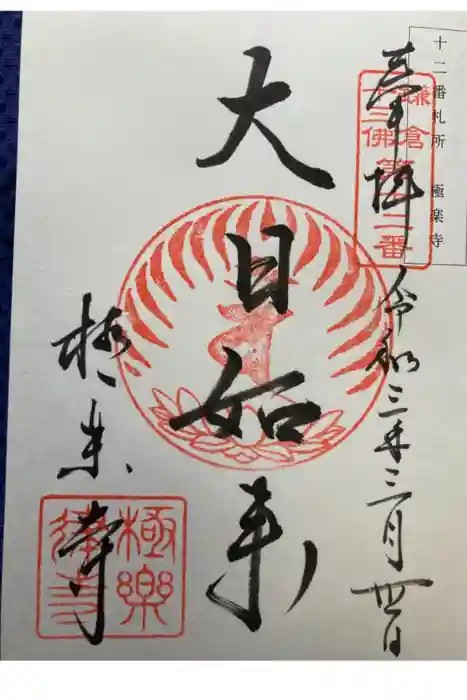 十二番札所 極楽寺
奉拝
鎌倉
十三佛
第十二番
令和三年三月
大日如来
極楽寺
極樂
律寺